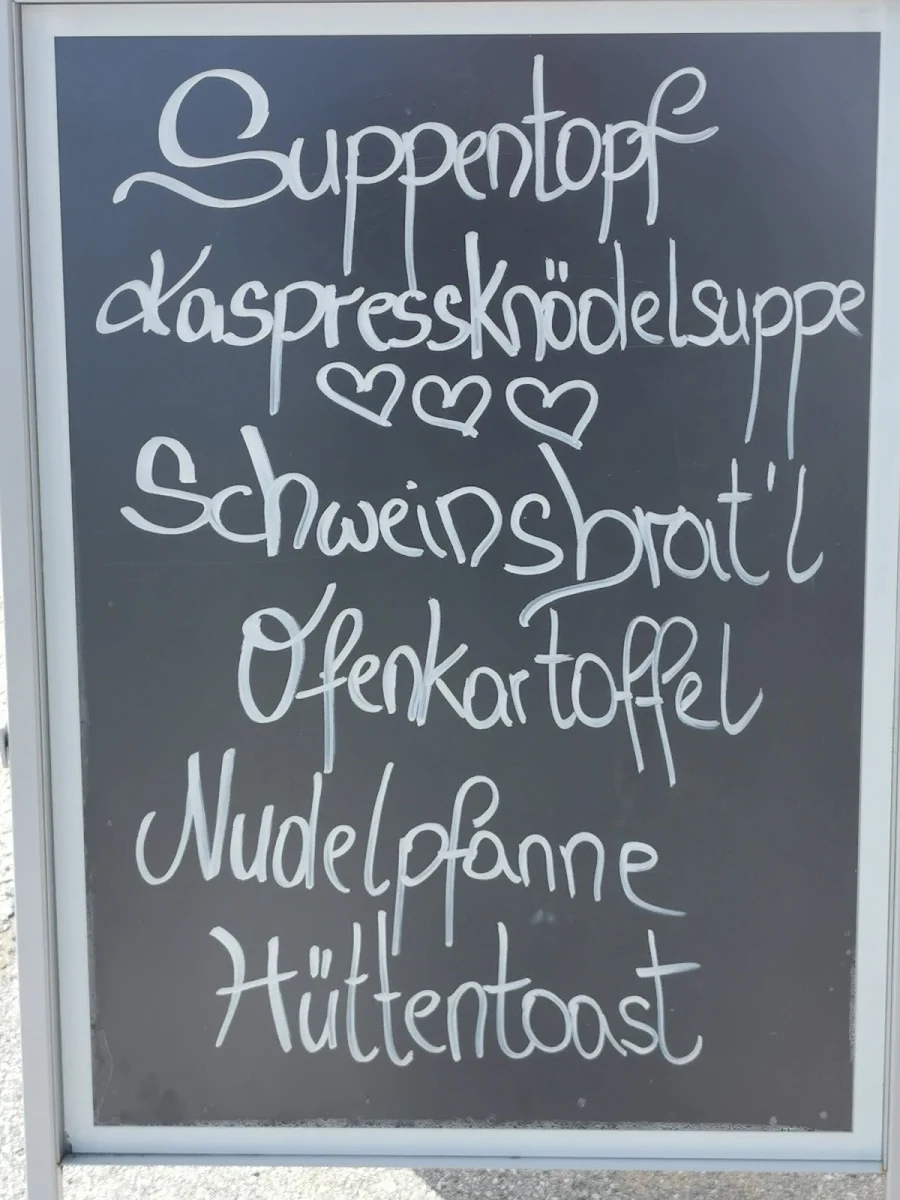 Suppentopf
Kaspressknödelsuppe
♡♡♡
Schweinsbrat'l
Ofenkartoffel
Nudelpfanne
Hüttentoast